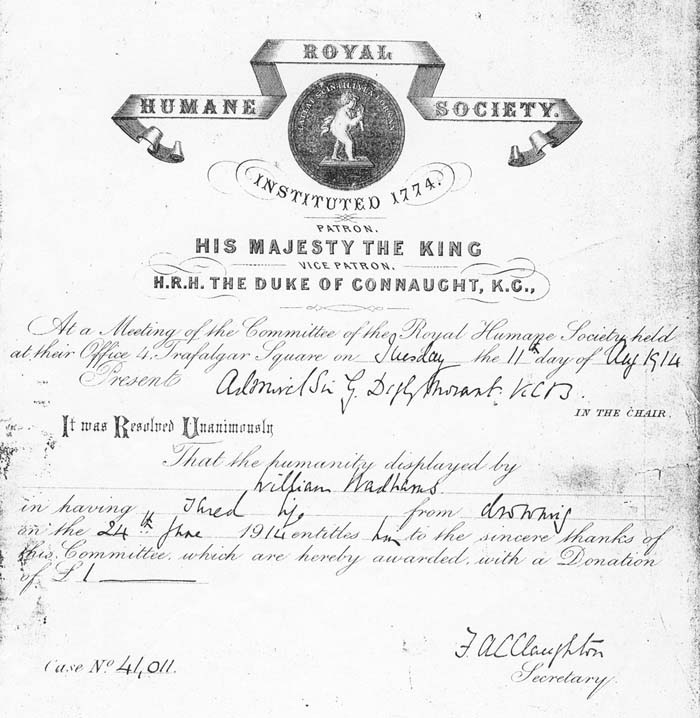 ROYAL
HUMANE SOCIETY.
INSTITUTED 1774.
PATRON.
HIS MAJESTY THE KING
VICE PATRON.
H.R.H. THE DUKE OF CONNAUGHT, K.G.,
At a Meeting of the Committee of the Royal Humane Society held
at their Office 4, Trafalgar Square on Tuesday the 11th day of Aug 1914
Present Admiral Sir G. Digby Morant KCB.
IN THE CHAIR.
It was Resolved Unanimously
That the humanity displayed by
William Wadhams
in having saved life from drowning
on the 24th June 1914 entitles him to the sincere thanks of
this Committee, which are hereby awarded, with a Donation
of £1
F.A.C. Claughton
Secretary.
Case No. 41,011.